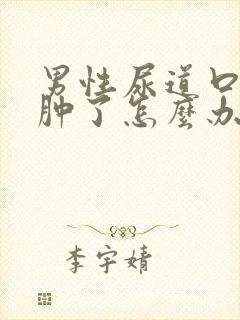 男性尿道口
肿了怎麼办
李宇婧